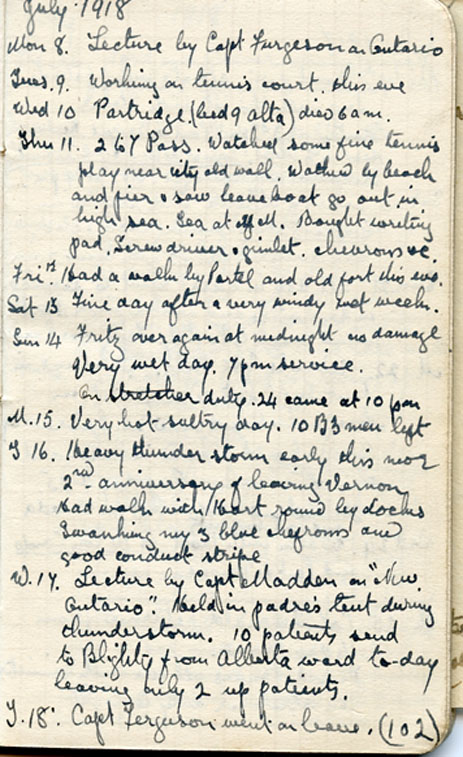 July 1918
Mon 8. Lecture by Capt Furgeson on Ontario
Tues. 9. Working on tennis court this eve
Wed 10 Partridge (bed 9 alta) died 6 am.
Thu 11. 2 to 7 Pass. Watched some fine tennis
play near city old wall. Walked by beach
and pier & saw leave boat go out in
high sea. Tea at M. Bought writing
pad, Screwdriver & gimlet. chevrons &c.
Fri 12. Had a walk by Portel and old fort this eve.
Sat 13 Fine day after a very windy wet week.
Sun 14 Fritz over again at midnight no damage
Very wet day. 7 pm service.
On Stretcher duty. 24 came at 10 pm
M. 15. Very hot sultry day. 10 B3 men left
T 16. Heavy thunder storm early this morg
2nd anniversary of leaving Vernon
Had walk with Hart round by docks
Swanking my 3 blue chefrons and
good conduct stripe
W. 17. Lecture by Capt Madden on "New
Ontario". Held in padre's tent during
thunderstorm. 10 patients send
to Blighty from Alberta ward to-day
leaving only 2 up patients.
T. 18. Capt Ferguson went on leave. (102)